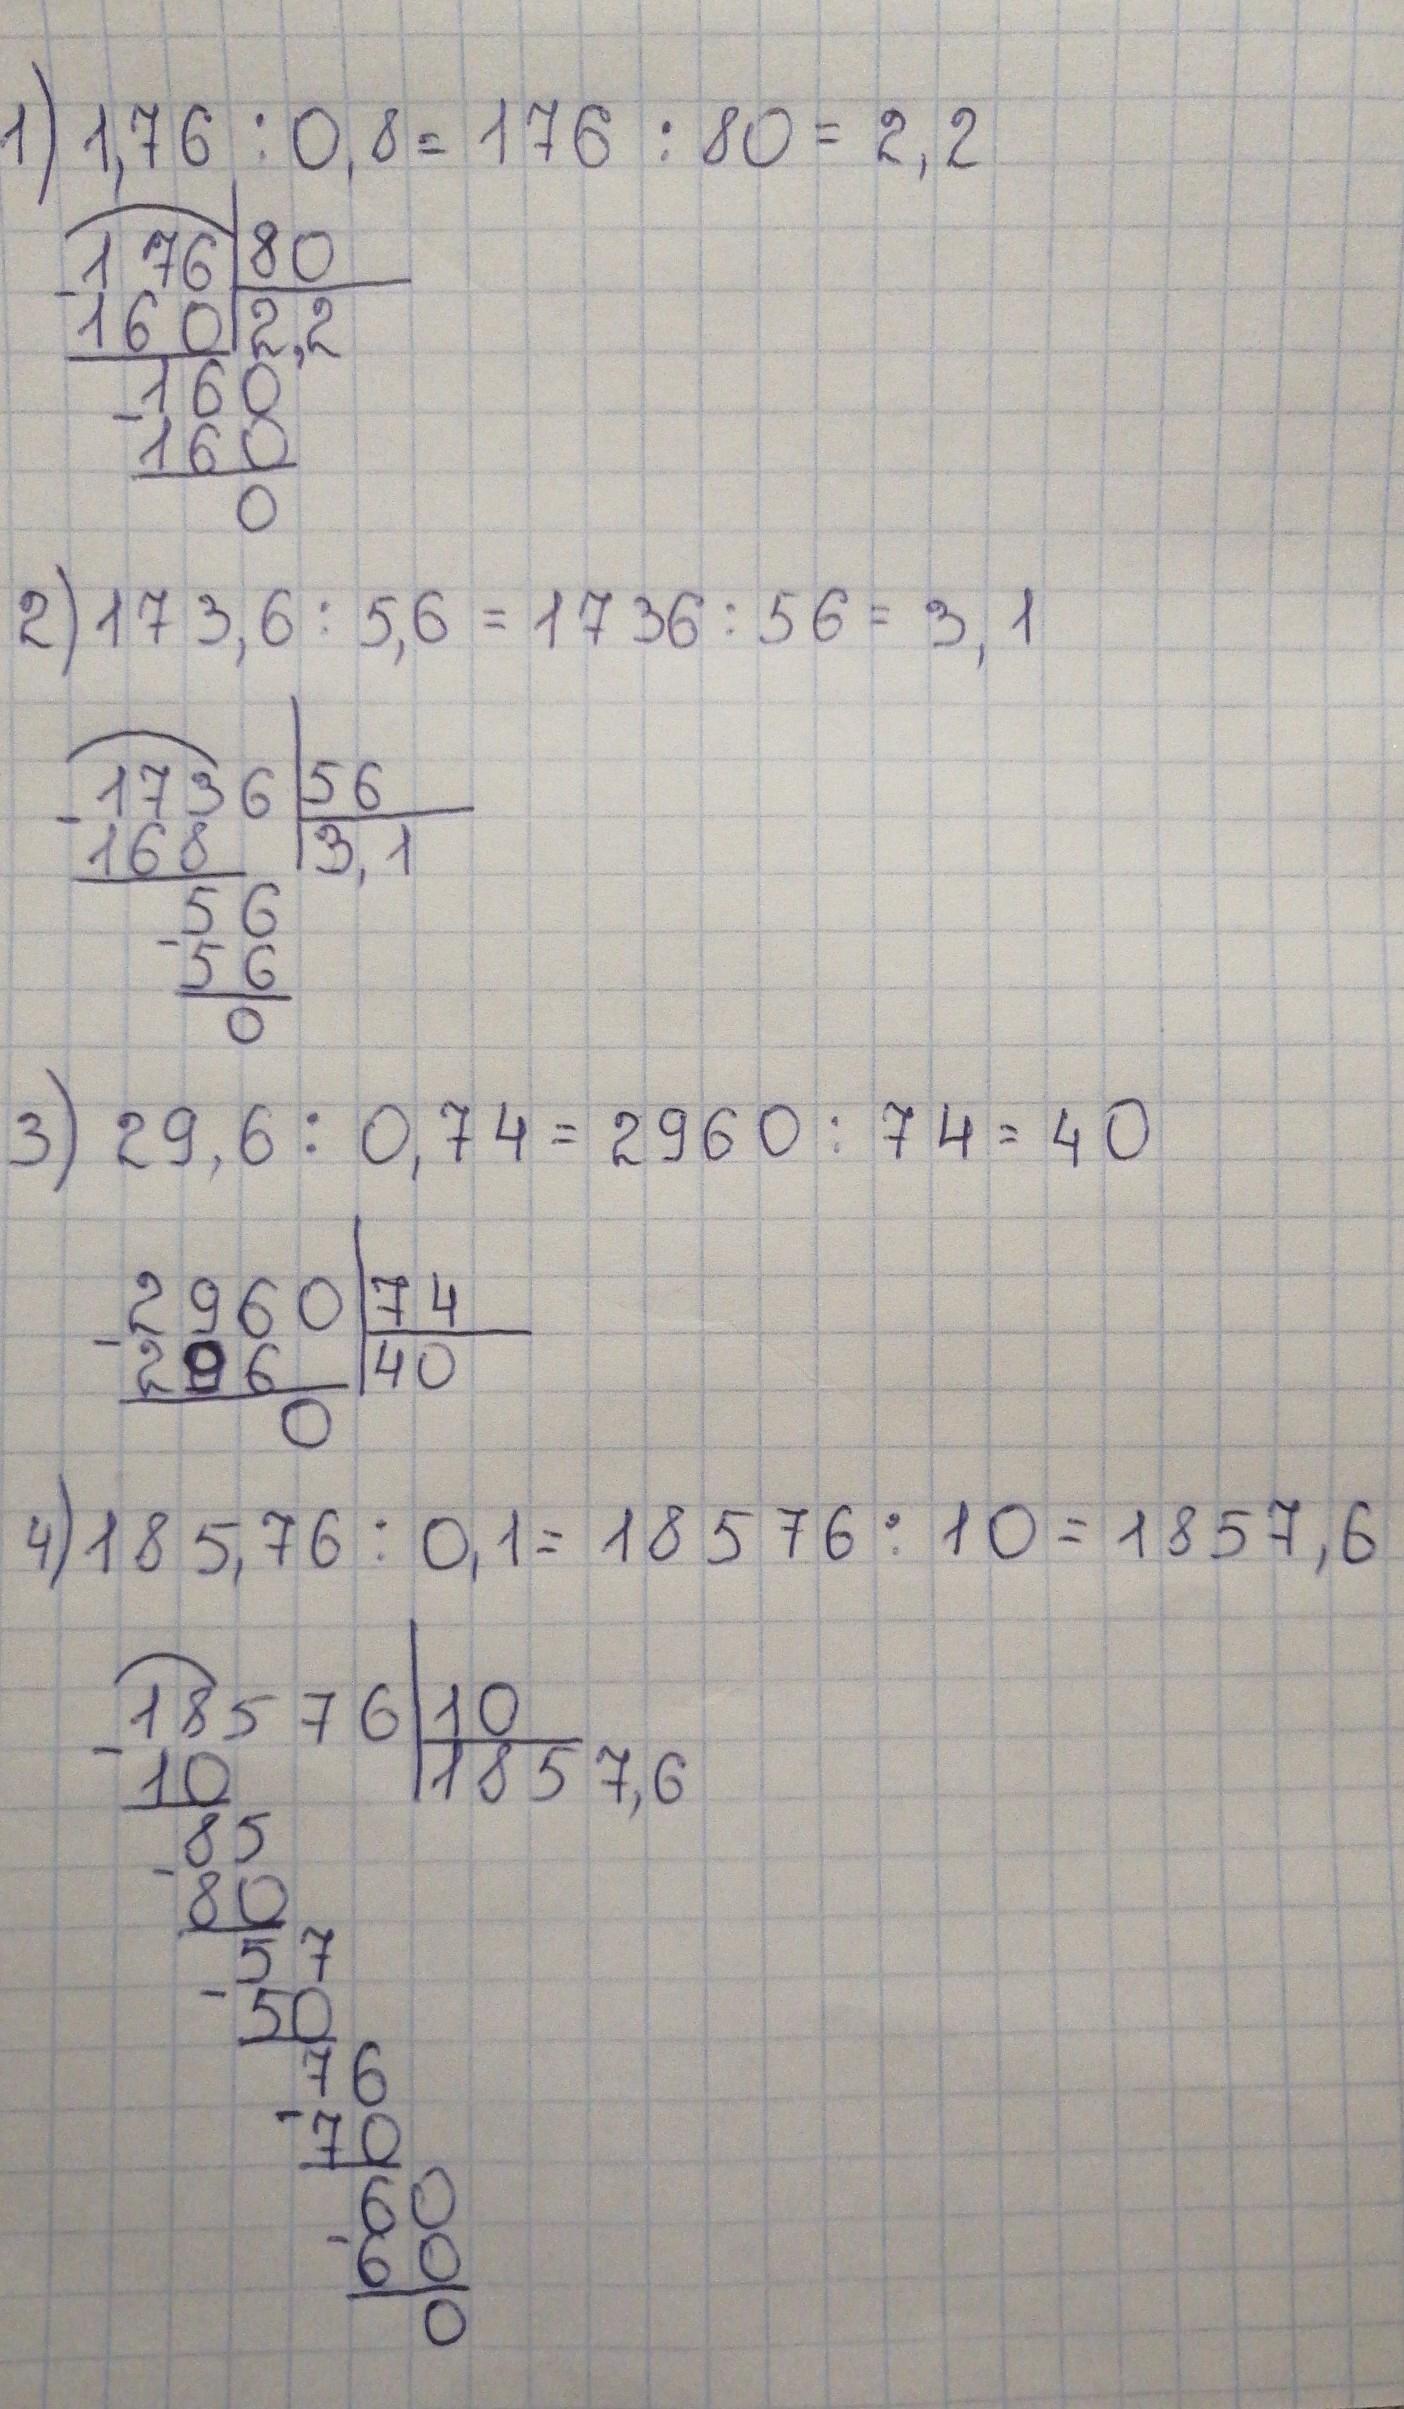 1) 1,76 : 0,8 = 176 : 80 = 2,2
- 176 | 80
160 | 2,2
- 160
160
0
2) 173,6 : 5,6 = 1736 : 56 = 3,1
- 1736 | 56
168 | 3,1
- 56
56
0
3) 29,6 : 0,74 = 2960 : 74 = 40
- 2960 | 74
296 | 40
0
4) 185,76 : 0,1 = 18576 : 10 = 1857,6
- 18576 | 10
10 | 1857,6
- 85
80
- 57
50
- 76
70
- 60
60
0